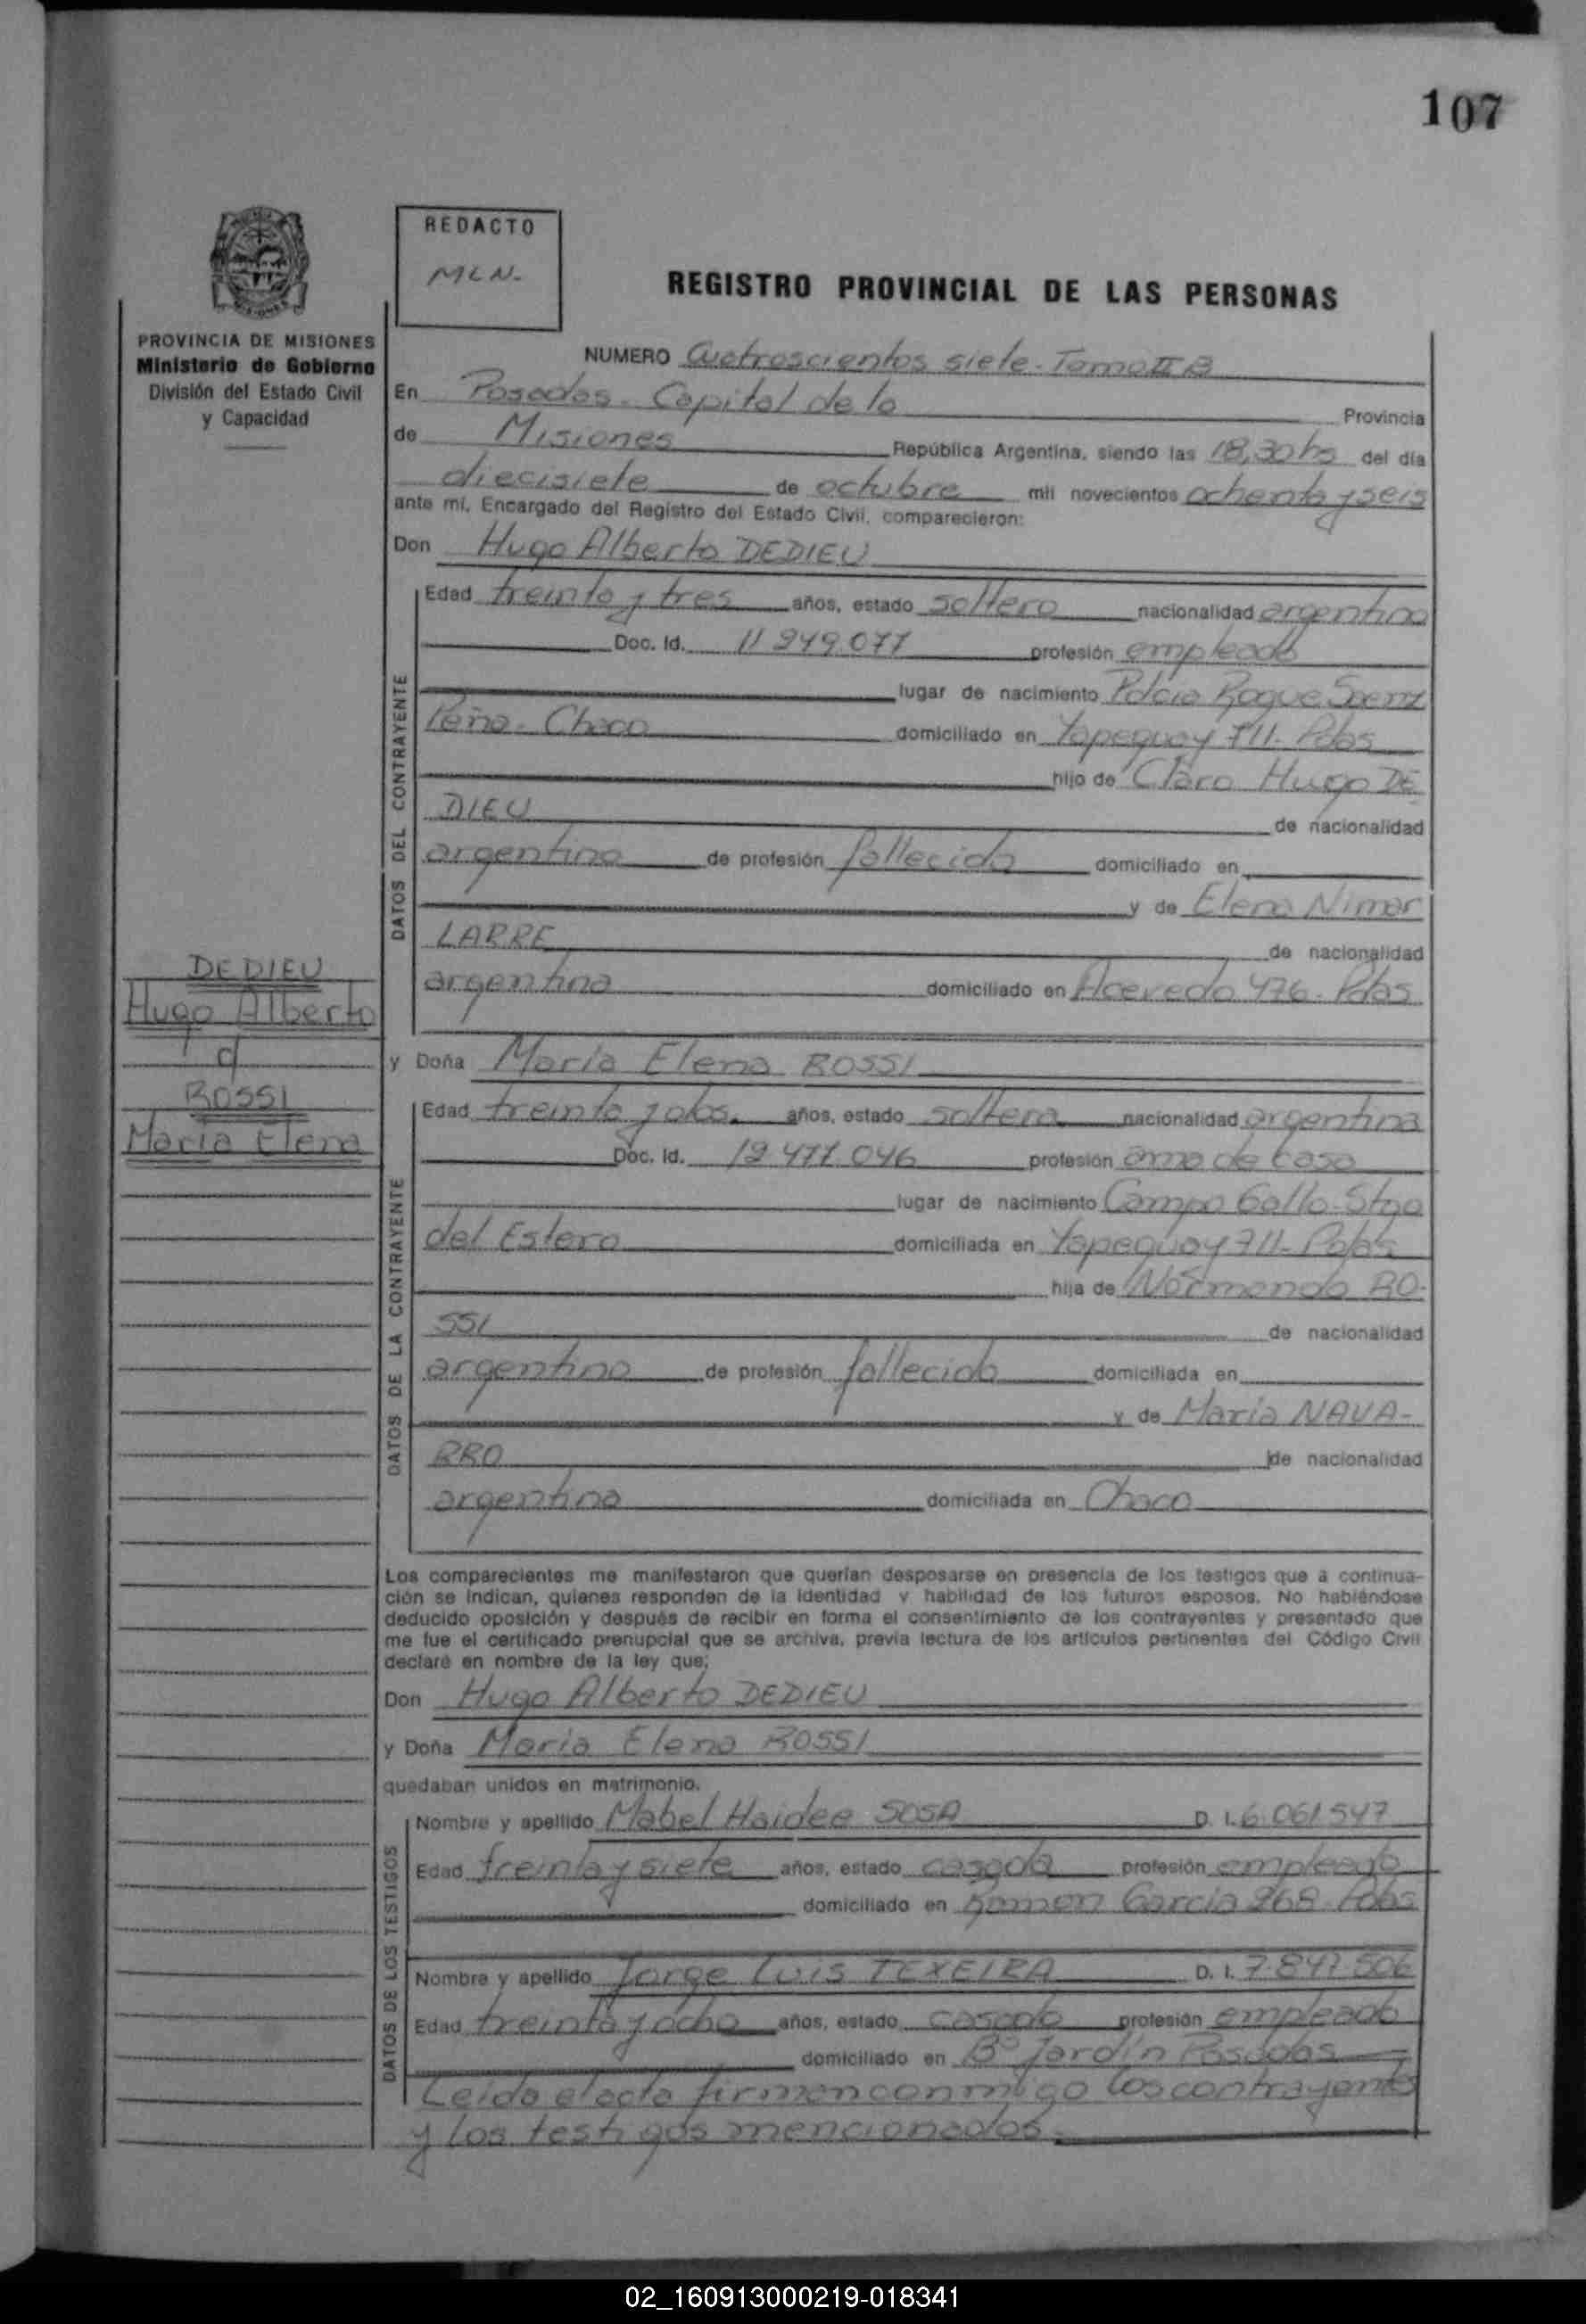 107
REDACTO
MLN.
REGISTRO PROVINCIAL DE LAS PERSONAS
PROVINCIA DE MISIONES
Ministerio de Gobierno
División del Estado Civil
y Capacidad
NUMERO Cuatroscientos siete. Tomo II B
En Posadas. Capital de la Provincia
de Misiones República Argentina, siendo las 18,30 hs del día
diecisiete de octubre mil novecientos ochenta y seis
ante mí, Encargado del Registro del Estado Civil, comparecieron:
Don Hugo Alberto DEDIEU
DATOS DEL CONTRAYENTE
Edad treinta y tres años, estado soltero nacionalidad argentina
Doc. Id. profesión empleado
lugar de nacimiento Pdcia Roque Saenz
Peña. Chaco domiciliado en Yapeguay 711. Pdas
hijo de Claro Hugo DE
DIEU de nacionalidad
argentina de profesión fallecido domiciliado en
y de Elena Nimar
LARRE de nacionalidad
argentina domiciliado en Acevedo 476. Pdas
DEDIEU
Hugo Alberto
c/
ROSSI
Maria Elena
y Doña María Elena ROSSI
DATOS DE LA CONTRAYENTE
Edad treinta y dos. años, estado soltera nacionalidad argentina
Doc. Id. profesión ama de casa
lugar de nacimiento Campo Gallo-Stgo
del Estero domiciliada en Yapeguay 711- Pdas
hija de Normando RO-
SSI de nacionalidad
argentino de profesión fallecido domiciliada en
y de María NAVA-
RRO de nacionalidad
argentina domiciliada en Chaco
Los comparecientes me manifestaron que querían desposarse en presencia de los testigos que a continua-
ción se indican, quienes responden de la identidad y habilidad de los futuros esposos. No habiéndose
deducido oposición y después de recibir en forma el consentimiento de los contrayentes y presentado que
me fue el certificado prenupcial que se archiva, previa lectura de los artículos pertinentes del Código Civil
declaré en nombre de la ley que;
Don Hugo Alberto DEDIEU
y Doña Maria Elena ROSSI
quedaban unidos en matrimonio.
DATOS DE LOS TESTIGOS
Nombre y apellido Mabel Haidee SOSA D. I. 6.061.547
Edad treinta y siete años, estado casada profesión empleado
domiciliado en Ramon Garcia 268. Pdas
Nombre y apellido Jorge Luis TEXEIRA D. I. 7.847.506
Edad treinta y ocho años, estado casado profesión empleado
domiciliado en B° Jardín Posadas
Leida el acta firman conmigo los contrayentes
y los testigos mencionados.
02_160913000219-018341